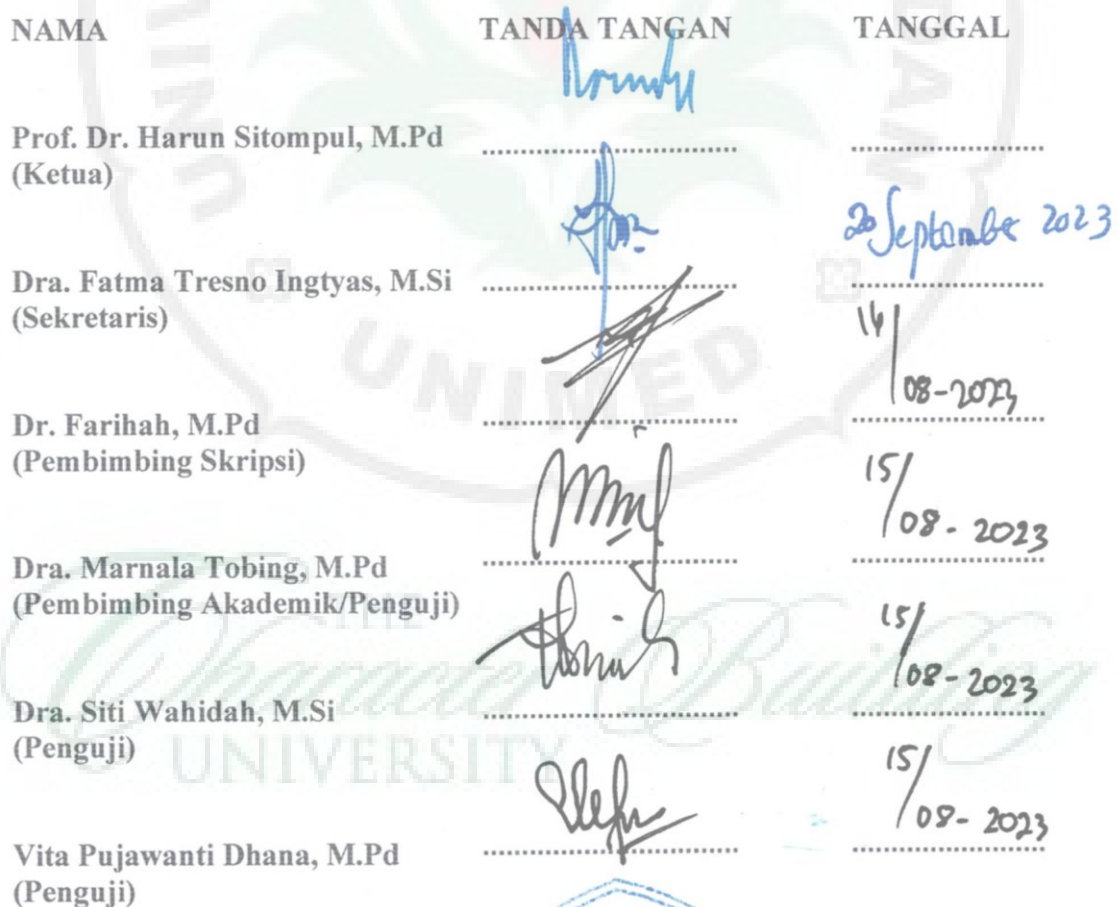 NAMA TANDA TANGAN TANGGAL
Prof. Dr. Harun Sitompul, M.Pd ............................................ ............................................
(Ketua)
20 September 2023
Dra. Fatma Tresno Ingtyas, M.Si ............................................ ............................................
(Sekretaris)
08-2023
Dr. Farihah, M.Pd ............................................ ............................................
(Pembimbing Skripsi)
15/08-2023
Dra. Marnala Tobing, M.Pd ............................................ ............................................
(Pembimbing Akademik/Penguji)
15/08-2023
Dra. Siti Wahidah, M.Si ............................................ ............................................
(Penguji)
15/08-2023
Vita Pujawanti Dhana, M.Pd ............................................ ............................................
(Penguji)
UNIMED
THE
Character Building
UNIVERSITY